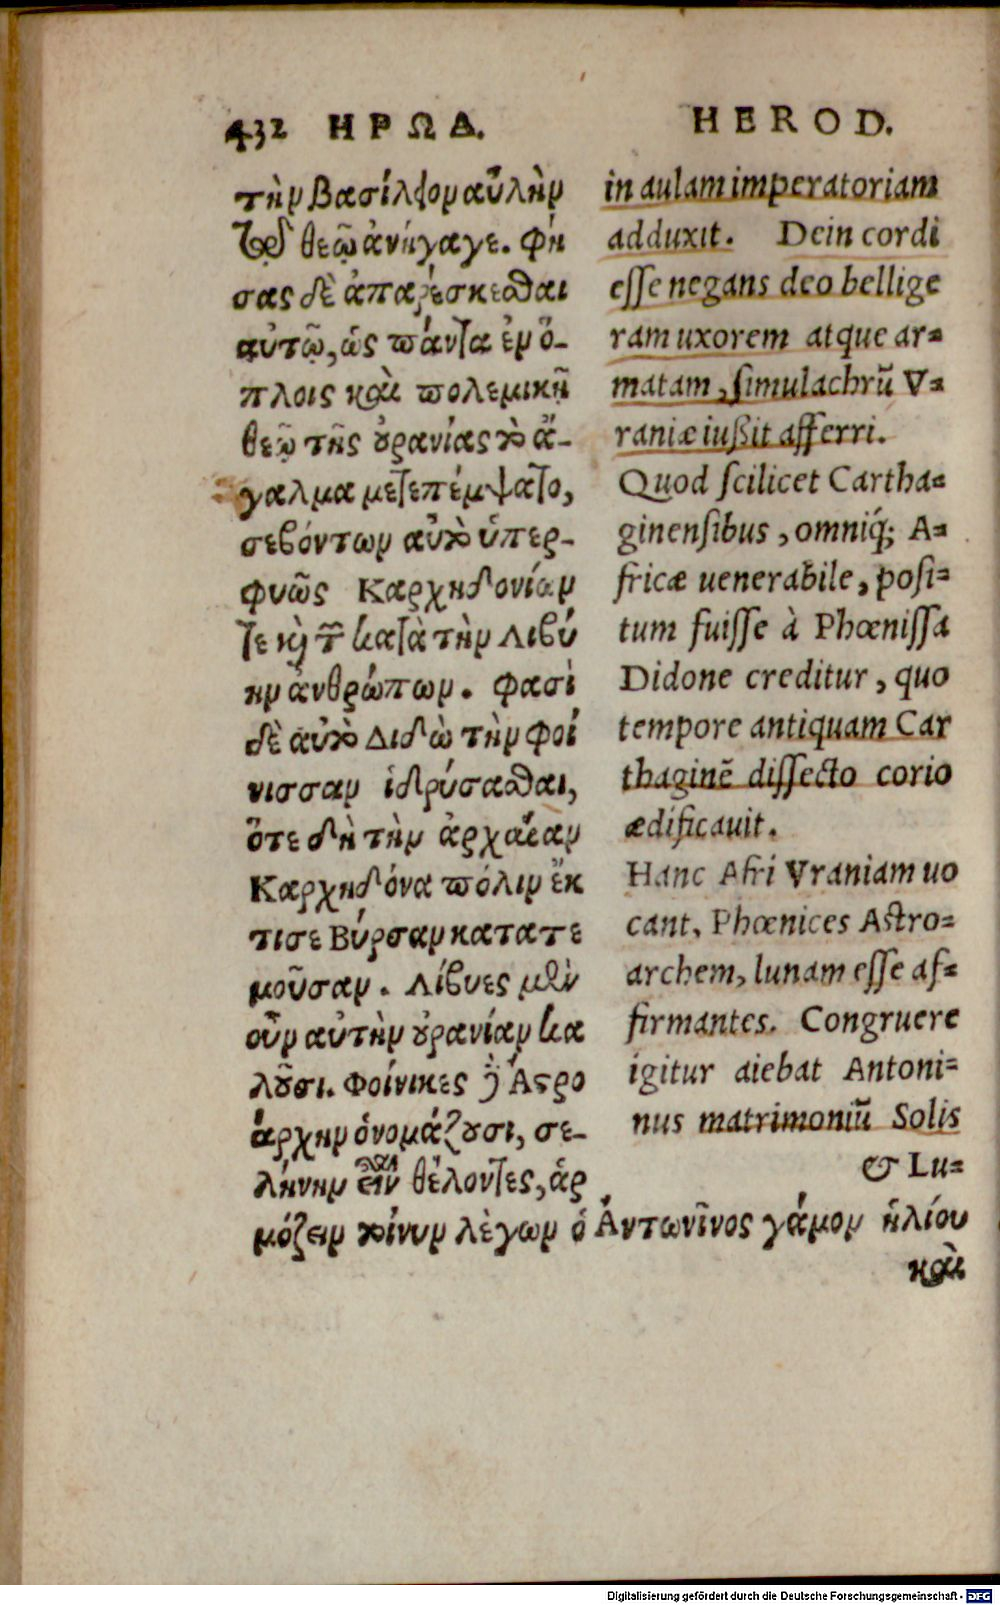 432 ΗΡΩΔ.
τὴν βασίλειον αὐλὴν
τῷ δὲ θεῷ ἀνήγαγε. Φή
σας δὲ ἀπαρέσκεσθαι
αὐτῷ, ὡς πάντα ἐν ὅ-
πλοις καὶ πολεμικῇ
θεῷ τῆς οὐρανίας τὸ ἄ-
γαλμα μετεπέμψατο,
σεβόντων αὐτὸ ὑπερ-
φυῶς Καρχηδονίων
τε καὶ τῶν κατὰ τὴν Λιβύ
ην ἀνθρώπων. φασὶ
δὲ αὐτὸ Διδὼ τὴν φοί
νισσαν ἱδρύσασθαι,
ὅτε δὴ τὴν ἀρχαίαν
Καρχηδόνα πόλιν ἔκ
τισε Βύρσαν κατατε
μοῦσαν. Λίβυες μὲν
οὖν αὐτὴν οὐρανίαν κα
λοῦσι. Φοίνικες δὲ Ἀστρο
άρχην ὀνομάζουσι, σε-
λήνην εἶναι θέλοντες, ἁρ
μόζειν τοίνυν λέγων ὁ Ἀντωνῖνος γάμον ἡλίου
καὶ
HEROD.
in aulam imperatoriam
adduxit. Dein cordi
esse negans deo bellige
ram uxorem atque ar=
matam, simulachrũ V=
raniæ iußit afferri.
Quod scilicet Cartha=
ginensibus, omniq́; A=
fricæ uenerabile, posi=
tum fuisse à Phœnissa
Didone creditur, quo
tempore antiquam Car
thaginẽ dissecto corio
ædificauit.
Hanc Afri Vraniam uo
cant, Phœnices Astro=
archem, lunam esse af=
firmantes. Congruere
igitur aiebat Antoni=
nus matrimoniũ Solis
& Lu=
Digitalisierung gefördert durch die Deutsche Forschungsgemeinschaft - DFG